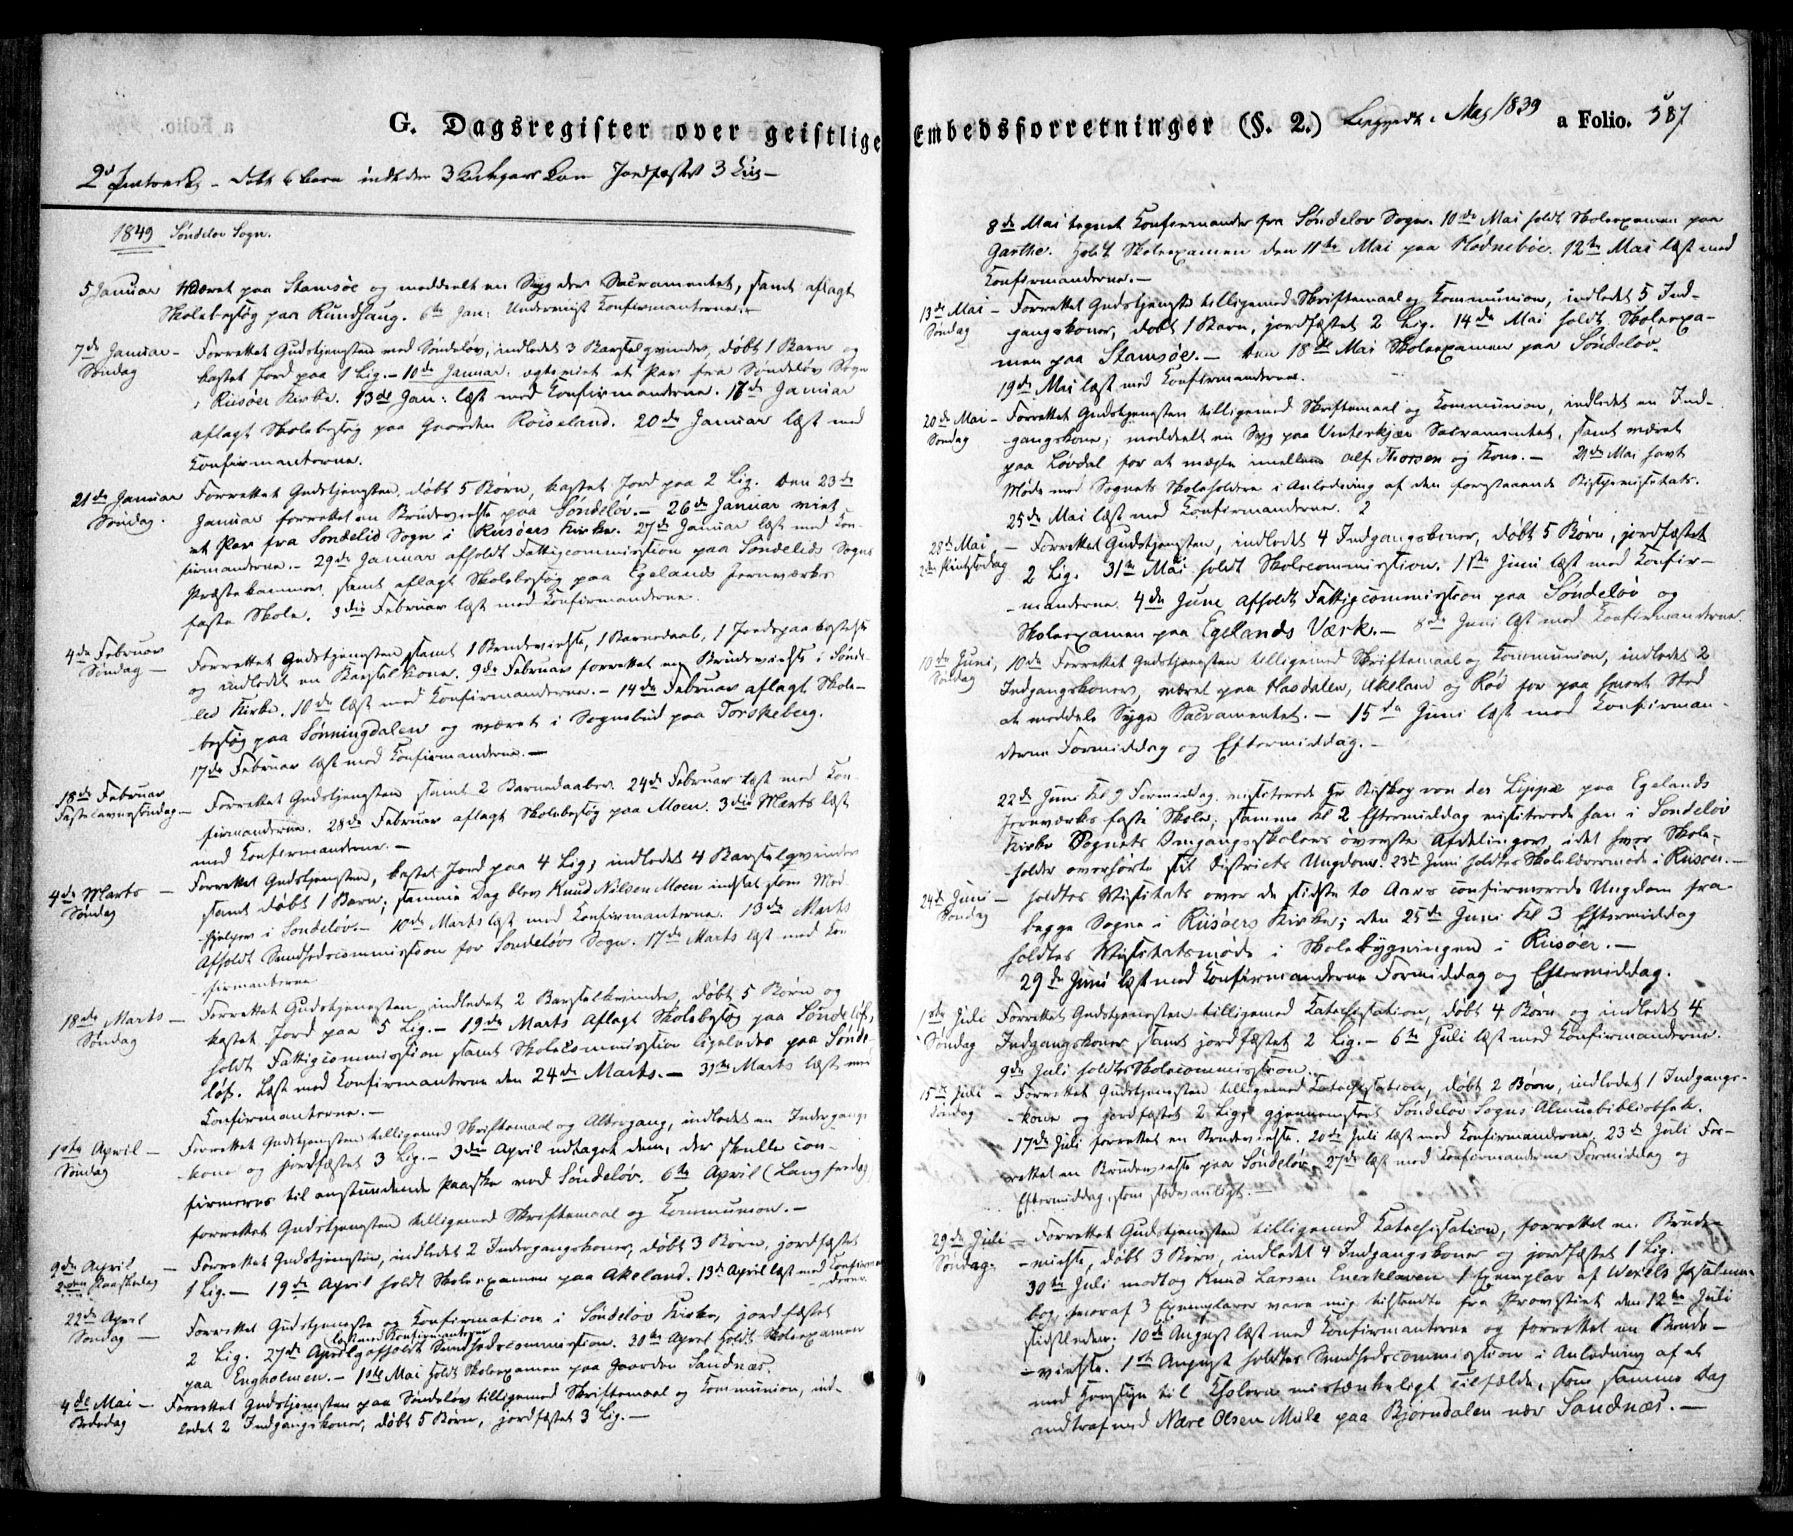 G. Dagsregister over geistlige Embedsforretninger (§. 2.) Mag 1839 a Folio. 587
døbt 6 Børn indleden 3 Jordfæstet 3 Liig —
1849 Søndelov Sogn.
5 Januar Været paa Stamsøe og meddeelt en Syg der Sacramentet, samt aflagt
Skolebesøg paa Rundhaug. 6te Jan: Underviist Confirmanterne. —
7de Januar — Forrettet Gudstjenesten ved Søndeløv, indledet 3 Barselqvinder, døbt 1 Barn og
Søndag kastet Jord paa 1 Lig. — 10de Januar. ægteviet et Par fra Søndeløv Sogn
i Riisøer Kirke. 13de Jan: læst med Confirmanderne. 17de Januar
aflagt Skolebesøg paa Gaarden Röiseland. 20de Januar læst med
Confirmanterne.
21de Januar Forrettet Gudstjenesten, døbt 5 Børn, kastet Jord paa 2 Lig. Den 23de
Søndag. Januar forrettet en Brudevielse paa Søndeløv. — 26de Januar viet
et Par fra Søndelid Sogn i Riisøers Kirke. 27de Januar læst med Con-
firmanderne. — 29de Januar afholdt Fattigcommission paa Søndelids Sogns
Præstekammer, samt aflagt Skolebesøg paa Egelands Jernværks
faste Skole. 3die Februar læst med Confirmanderne.
4de Februar Forrettet Gudstjenesten samt 1 Brudevielse, 1 Barnedaab, 1 Jordspaakastelse
Søndag — og indledet en Barselkone. 9de Februar forrettet en Brudevielse i Sönde-
led Kirke. 10de læst med Confirmanderne. — 14de Februar aflagt Skole-
besøg paa Sønningdalen og været i Sognebud paa Torskeberg.
17de Februar læst med Confirmanderne. —
18de Februar Forrettet Gudstjenesten samt 2 Barnedaaber. 24de Februar læst med Con-
Fastelavnssøndag — firmanderne. 28de Februar aflagt Skolebesøg paa Moen. 3die Marts læst
med Confirmanderne. —
4de Marts — Forrettet Gudstjenesten, kastet Jord paa 4 Lig; indledet 4 Barselqvinder
Søndag samt døbt 1 Barn; samme Dag blev Knud Nilsen Moen indsat som Med
hjelper i Søndeløv. — 10de Marts læst med Confirmanterne. 13de Marts
Afholdt Sundhedscommission for Søndeløvs Sogn. 17de Marts læst med Con
firmanterne
18de Marts — Forrettet Gudstjenesten, indledet 2 Barselkvinder, døbt 5 Børn og
Søndag kastet Jord paa 5 Lig. — 19de Marts Aflagt Skolebesøg paa Søndeløf,
holdt Fattigcommission samt Skolecommission ligeledes paa Sønde-
løf. Læst med Confirmanterne den 24de Marts. — 31te Marts læst med
Confirmanterne. —
1ste April — Forrettet Gudstjenesten tilligemed Skriftemaal og Altergang, indledet en Indergangs
Søndag kone og jordfæstet 3 Lig. — 3die April udtaget dem, der skulle con-
firmeres til anstundende Paaske ved Søndeløv. 6te April (Langfredag
forrettet Gudstjenesten tilligemed Skriftemaal og Communion. —
9de April — Forrettet Gudstjenesten, indledet 2 Indergangskoner, døbt 3 Børn, jordfæstet
2den Paaskedag 1 Lig. — 19de April holdt Skoleexamen paa Akeland. 13de April læst med Confirman-
derne.
22de April Forrettet Gudstjeneste og Confirmation i Søndeløv Kirke, jordfæstet
Søndag — 2 Lig. 27de April afholdt Sundhedscommission. 30te April holdt Skoleexamen
paa Engholmen. — 1ste Mai holdt Skoleexamen paa Gaarden Sandnæs.
4de Mai — Forrettet Gudstjenesten paa Søndeløv tilligemed Skriftemaal og Communion, ind-
Bededag ledet 2 Indgangskoner, døbt 5 Børn, jordfæstet 3 Lig. —
8de Mai tegnet Confirmander fra Søndelov Sogn. 10de Mai holdt Skoleexamen paa
Garthe. Holdt Skoleexamen den 11te Mai paa Hødnebøe. 12te Mai læst med
Confirmanderne. —
13de Mai — Forrettet Gudstjeneste tilligemed Skriftemaal og Communion, indledet 5 Ind-
Søndag gangskoner, døbt 1 Barn, jordfæstet 2 Lig. 14de Mai holdt Skoleexa-
men paa Stamsøe. — Den 18de Mai Skoleexamen paa Søndeløv.
19de Mai læst med Confirmanderne.
20de Mai — Forrettet Gudstjenesten tilligemed Skriftemaal og Communion, indledet en Ind-
Søndag gangskone; meddeelt en Syg paa Vinterkjær Sacramentet, samt været
paa Løvdal for at mægle imellem Alf Thorsen og Kone. — 21de Mai havt
Møde med Sognets Skoleholdere i Anledning af den forestaaende Bispevisitats.
25de Mai læst med Confirmanderne.
28de Mai — Forrettet Gudstjenesten, indledet 4 Indgangskoner, døbt 5 Børn, jordfæstet
2den Pintsedag 2 Lig. 31te Mai holdt Skolecommission. 1ste Juni læst med Confir-
manderne. 4de Juni Afholdt Fattigcommission paa Søndeløv og
Skoleexamen paa Egelands Værk. — 8de Juni læst med Confirmanderne.
10de Juni, 10de Forrettet Gudstjenesten tilligemed Skriftemaal og Communion, indledet 2
Søndag Indgangskoner, været paa Hasdalen, Akeland og Rød for paa hvert Sted
at meddele Syge Sacramentet. — 15de Juni læst med Confirman-
derne Formiddag og Eftermiddag. —
22de Juni Kl 9 Formiddag visiterede Hr Biskop von der Lippe paa Egelands
Jernværks faste Skole; samme Kl 2 Eftermiddag visiterede han i Søndeløv
Kirke Sognets Omgangsskolers øverste Afdelinger, idet hver Skole-
holder overhørte sit Districts Ungdom. 23de Juni holdtes Skolelærermøde i Riisøer. —
24de Juni — holdtes Visitats over de sidste 10 Aars confirmerede Ungdom fra
Søndag begge Sogne i Riisøers Kirke; den 25de Juni Kl 3 Eftermiddag
holdtes Visitatsmøde i Skolebygningen i Riisøer. —
29de Juni læst med Confirmanderne Formiddag og Eftermiddag.
1ste Juli Forrettet Gudstjenesten tilligemed Katechisation, døbt 4 Børn og indledet 4
Søndag Indgangskoner samt jordfæstet 2 Lig. — 6te Juli læst med Confirmanderne.
9de Juli holdtes Skolecommission.
15de Juli — Forrettet Gudstjenesten tilligemed Katechisation, døbt 2 Børn, indledet 1 Indgangs-
Søndag kone og jordfæstet 2 Lig; gjennemseet Søndeløv Sogns Almuebibliothek.
17de Juli forrettet en Brudevielse. 20de Juli læst med Confirmanderne. 23de Juli For-
rettet en Brudevielse paa Søndeløv. 27de læst med Confirmanderne Formiddag og
Eftermiddag, som sædvanligt. —
29de Juli — Forrettet Gudstjenesten tilligemed Katechisation, forrettet en Brude-
Søndag. vielse, døbt 3 Børn, indledet 4 Indgangskoner og jordfæstet 1 Lig.
30te Juli modtog Knud Larsen Enerklaven 1 Exemplar af Wexels Psalme-
bog, hvoraf 3 Exemplarer vare mig tilsendte fra Provstiet den 12te Juli
sidstleden. 10de August læst med Confirmanterne og forrettet en Brude-
vielse. 1ste August holdtes Sundhedscommission i Anledning af et
med Hensyn til Cholera mistænkeligt Tilfælde, som samme Dag
indtraf med Nære Olsen Mule paa Bjørndalen nær Sandnæs. —